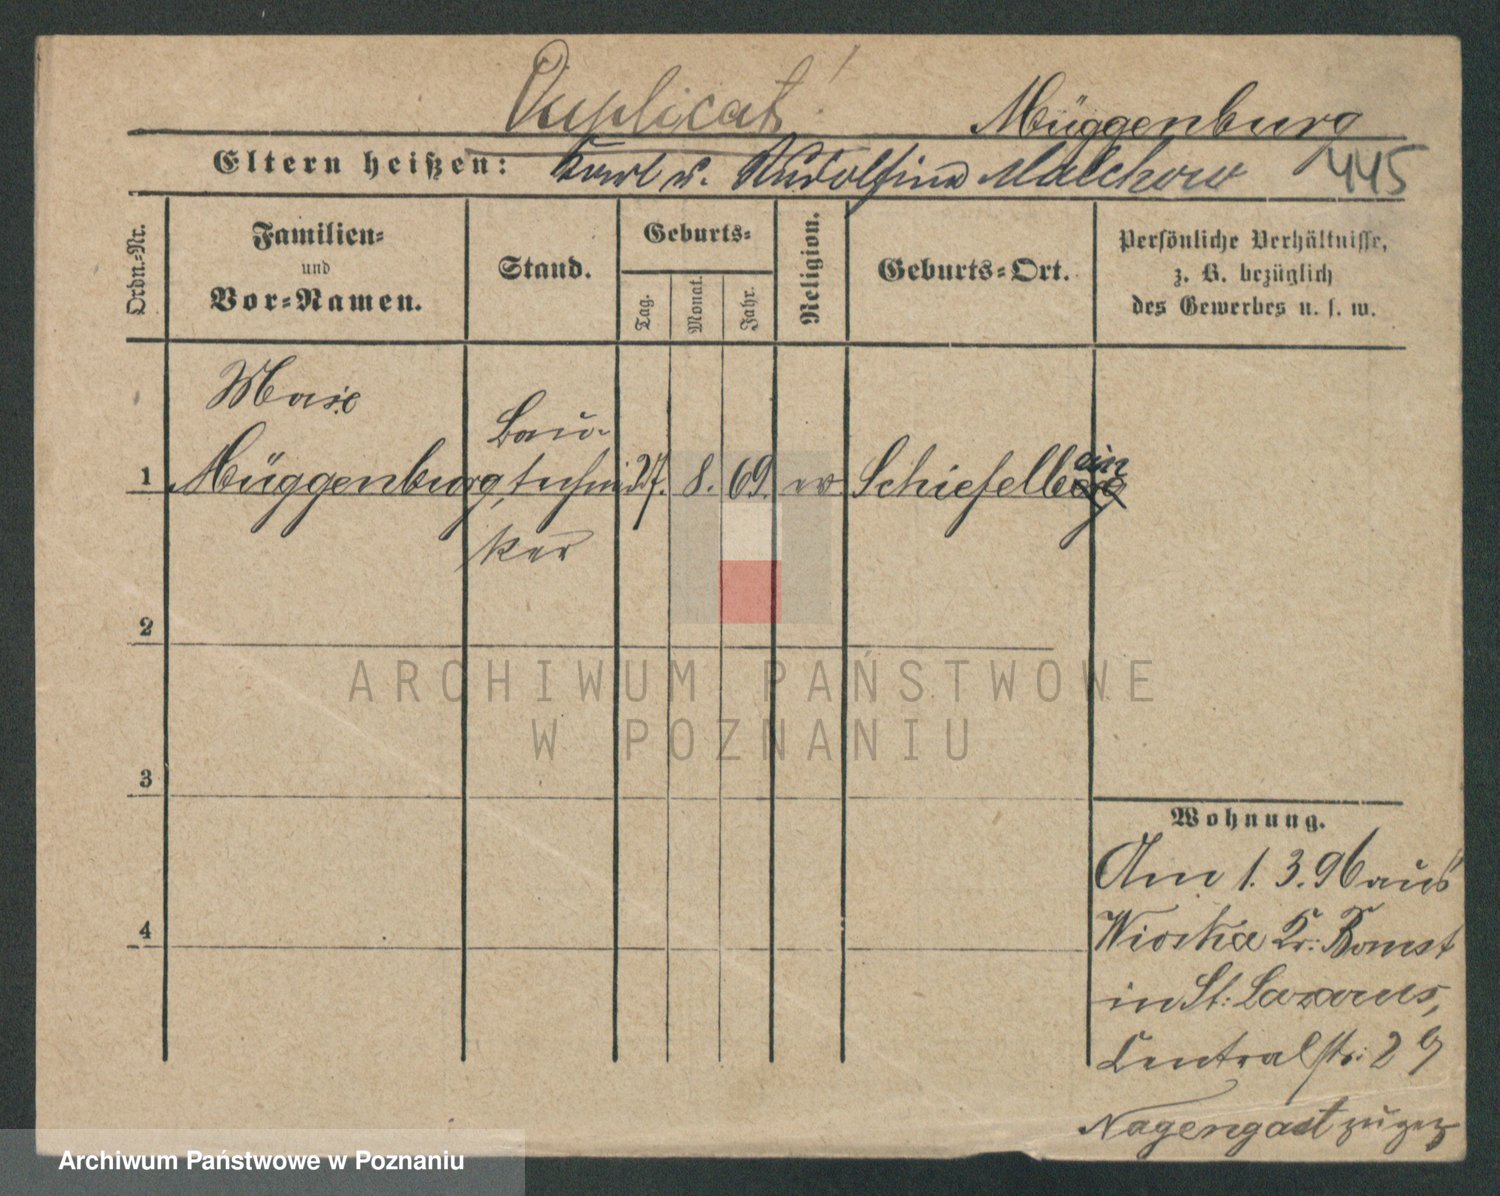 Duplicat!
Müggenburg
Eltern heißen: Karl u. Rudolfina Malchow 445
Ordn.-Nr.
Familien-
und
Vor-Namen.
Stand.
Geburts-
Tag.
Monat.
Jahr.
Religion.
Geburts-Ort.
Persönliche Verhältnisse,
z. B. bezüglich
des Gewerbes u. s. w.
Max
Bau-
1 Müggenburg, techni 27. 8. 69. ev Schiefelbein
ker
2
ARCHIWUM PAŃSTWOWE
W POZNANIU
3
Wohnung.
Am 1. 3. 96 aus
4
Wioska Kr. Bomst
in St. Lazarus,
Centralstr. 29
Nagengast zugez
Archiwum Państwowe w Poznaniu